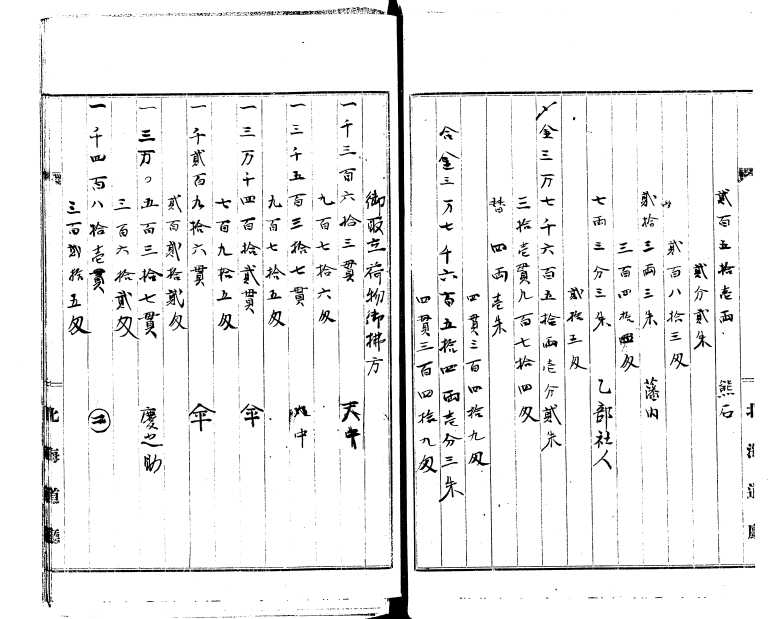 貳百五拾壱両 熊石
貳分貳朱
貳百八拾三匁
貳拾三両三朱 藩内
三百四拾四匁
七両三分三朱 乙部社人
貳拾五匁
金三万七千六百五拾両壱分貳朱
三拾壱貫九百七拾四匁
替 四両壱朱
四貫三百四拾九匁
合金三万七千六百五拾四両壱分三朱
四貫三百四拾九匁
北海道廳
御取立荷物御拂方
一千三百六拾三貫 天中
九百七拾六匁
一三千五百三拾七貫 中
九百七拾五匁
一三万千四百拾貳貫 傘
七百九拾五匁
一千貳百九拾六貫 傘
貳百貳拾貳匁
一三万〇五百三拾七貫 慶之助
三百六拾貳匁
一千四百八拾壱貫
三百貳拾五匁
北海道廳